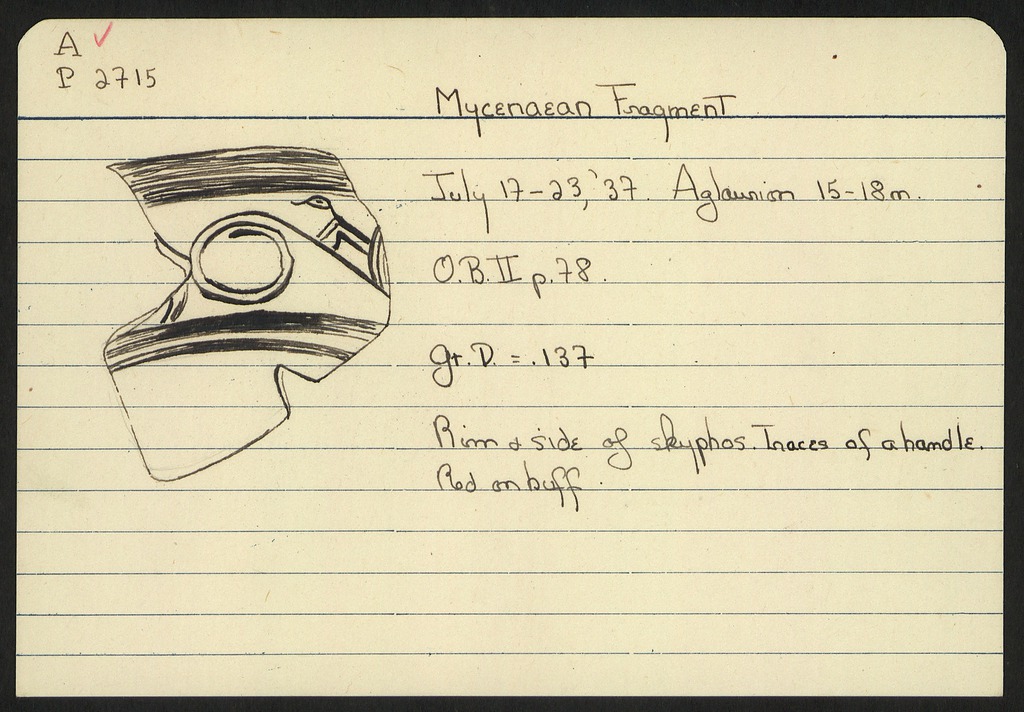 A ✓
P 2715
Mycenaean Fragment
July 17-23, '37. Aglaurion 15-18m.
O.B. II p. 78.
Gr. D. = .137
Rim + side of skyphos. Traces of a handle.
Red on buff.